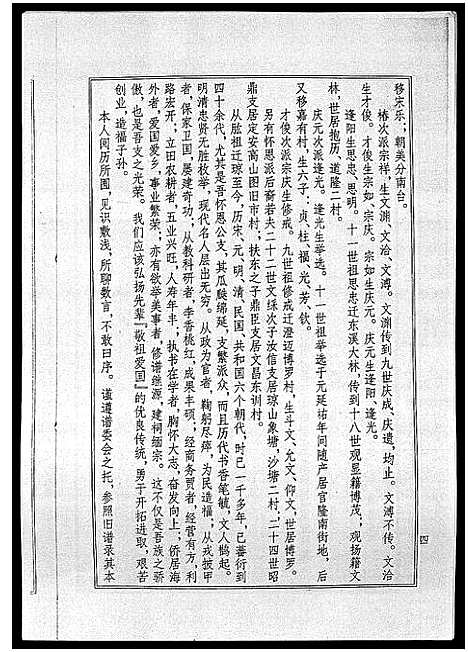 移宗乐；朝美分南台。
椿次派宗祥，生文渊、文治、文溥。文渊传到九世庆成、庆遗，均止。文溥不传。文治
生才俊。才俊生宗如、宗庆。宗如生庆元。庆元生逢阳、逢光。
逢阳生思忠、思明。十一世祖思忠迁东溪大林，传到十八世观显籍博茂；观扬籍文
林，世居抱历、道隆二村。
庆元次派逢光。逢光生举选。十一世祖举选于元延祐年间随产居官隆南街地，后
又移嘉有村，生六子：贞、柱、福、光、芳、钦。
才俊次派宗庆生修戒。九世祖修戒迁澄迈博罗村，生斗文、允文、仰文，世居博罗。
另有怀恩派后裔若夫二十二世文𬘘次子汝信支居琼山象塘，沙塘二村，二十四世昭
鼎支居定安高山图旧市村；扶东之子鼎臣支居文昌东训村。
从肱祖迁琼至今，历宋、元、明、清、民国、共和国六个朝代，时已一千多年，已蕃衍到
四十余代，尤其是吾怀恩公支，其瓜瓞绵延，支繁派众，而且历代书香笔毓，文人鹊起。
明清忠贤无胜枚举，现代名人层出无穷。从政为官者，鞠躬尽瘁，为民造福；从戎披甲
者，保家卫国，屡建奇功；从教科研者，李香桃红，成果丰硕；经商务贾者，经营有方，利
路宏开；立田农耕者，五业兴旺，人寿年丰；执书在学者，胸怀大志，奋发向上；侨居海
外者，爱国爱乡，事业繁荣；亦有欲举美事者，修谱继源，建祠缅宗。这不仅是吾族之骄
傲，也是吾支之光荣。我们应该弘扬先辈『敬祖爱国』的优良传统，勇于开拓进取，艰苦
创业，造福子孙。
本人阅历所囿，见识敷浅，所聊数言，不敢曰序。谨遵谱委会之托，参照旧谱录其本
四